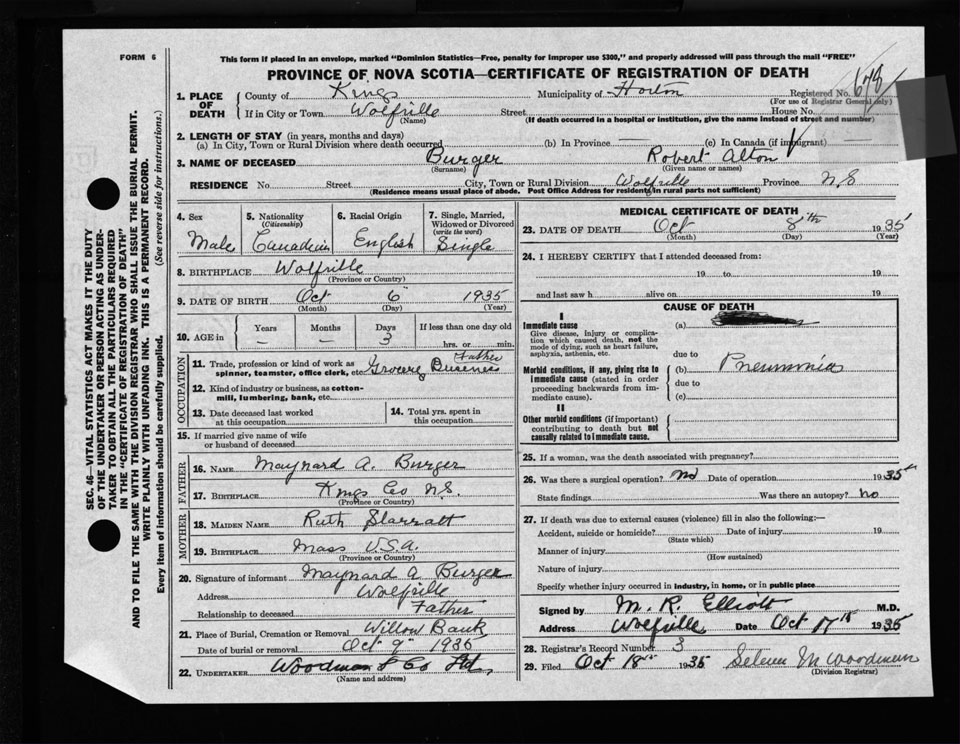 FORM 6
This form if placed in an envelope, marked "Dominion Statistics—Free, penalty for improper use $300," and properly addressed will pass through the mail "FREE"
PROVINCE OF NOVA SCOTIA—CERTIFICATE OF REGISTRATION OF DEATH
1. PLACE OF DEATH { County of Kings Municipality of Horton Registered No. 678
(For use of Registrar General only)
If in City or Town Wolfville Street House No.
(Name) (If death occurred in a hospital or institution, give the name instead of street and number)
2. LENGTH OF STAY (in years, months and days)
(a) In City, Town or Rural Division where death occurred (b) In Province (c) In Canada (if immigrant)
3. NAME OF DECEASED Burger Robert Alton
(Surname) (Given name or names)
RESIDENCE No. Street City, Town or Rural Division Wolfville Province N.S
(Residence means usual place of abode. Post Office Address for residents in rural parts not sufficient)
4. Sex Male
5. Nationality (Citizenship) Canadian
6. Racial Origin English
7. Single, Married, Widowed or Divorced (write the word) Single
8. BIRTHPLACE Wolfville
(Province or Country)
9. DATE OF BIRTH Oct 6 1935
(Month) (Day) (Year)
10. AGE in { Years – Months – Days 3 If less than one day old
hrs. or min.
OCCUPATION
11. Trade, profession or kind of work as spinner, teamster, office clerk, etc. Grocery Business Father
12. Kind of industry or business, as cotton-mill, lumbering, bank, etc.
13. Date deceased last worked at this occupation
14. Total yrs. spent in this occupation
15. If married give name of wife or husband of deceased
FATHER
16. NAME Maynard A. Burger
17. BIRTHPLACE Kings Co N.S.
(Province or Country)
MOTHER
18. MAIDEN NAME Ruth Starratt
19. BIRTHPLACE Mass U.S.A.
(Province or Country)
20. Signature of informant Maynard A Burger
Address Wolfville
Relationship to deceased Father
21. Place of Burial, Cremation or Removal Willow Bank
Date of burial or removal Oct 9th 1935
22. UNDERTAKER Woodman & Co Ltd,
(Name and address)
MEDICAL CERTIFICATE OF DEATH
23. DATE OF DEATH Oct 8th 1935
(Month) (Day) (Year)
24. I HEREBY CERTIFY that I attended deceased from:
19 to 19
and last saw h alive on 19
CAUSE OF DEATH
I
Immediate cause
Give disease, injury or complication which caused death, not the mode of dying, such as heart failure, asphyxia, asthenia, etc.
(a)
due to
Morbid conditions, if any, giving rise to immediate cause (stated in order proceeding backwards from immediate cause).
(b) Pneumonia
due to
(c)
II
Other morbid conditions (if important) contributing to death but not causally related to immediate cause.
25. If a woman, was the death associated with pregnancy?
26. Was there a surgical operation? No Date of operation 1935
State findings Was there an autopsy? no
27. If death was due to external causes (violence) fill in also the following:—
Accident, suicide or homicide? Date of injury 19
(State which)
Manner of injury
(How sustained)
Nature of injury
Specify whether injury occurred in industry, in home, or in public place
Signed by M. R. Elliott M.D.
Address Wolfville Date Oct 17th 1935
28. Registrar's Record Number 3
29. Filed Oct 18th 1935 M Woodman
(Division Registrar)
SEC. 46—VITAL STATISTICS ACT MAKES IT THE DUTY
OF THE UNDERTAKER OR PERSON ACTING AS UNDER-
TAKER TO OBTAIN ALL THE PARTICULARS REQUIRED
IN THE "CERTIFICATE OF REGISTRATION OF DEATH"
AND TO FILE THE SAME WITH THE DIVISION REGISTRAR WHO SHALL ISSUE THE BURIAL PERMIT.
WRITE PLAINLY WITH UNFADING INK. THIS IS A PERMANENT RECORD.
Every item of information should be carefully supplied. (See reverse side for instructions.)